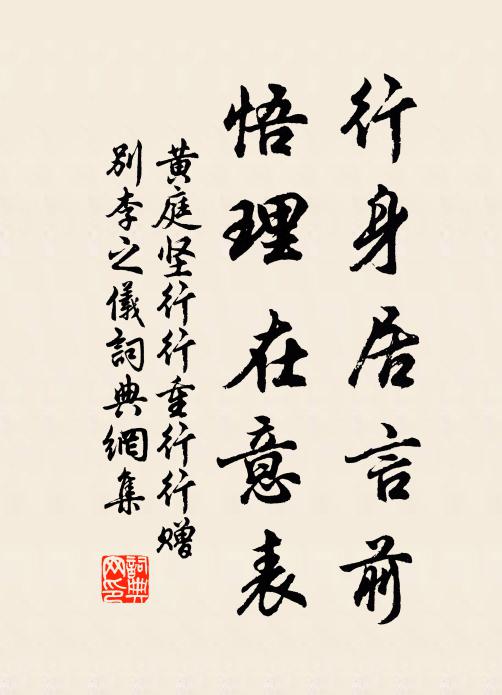 行身居言前
悟理在意表
黄庭坚行行重行行赠
别李之儀詞典網集
詞典
网印